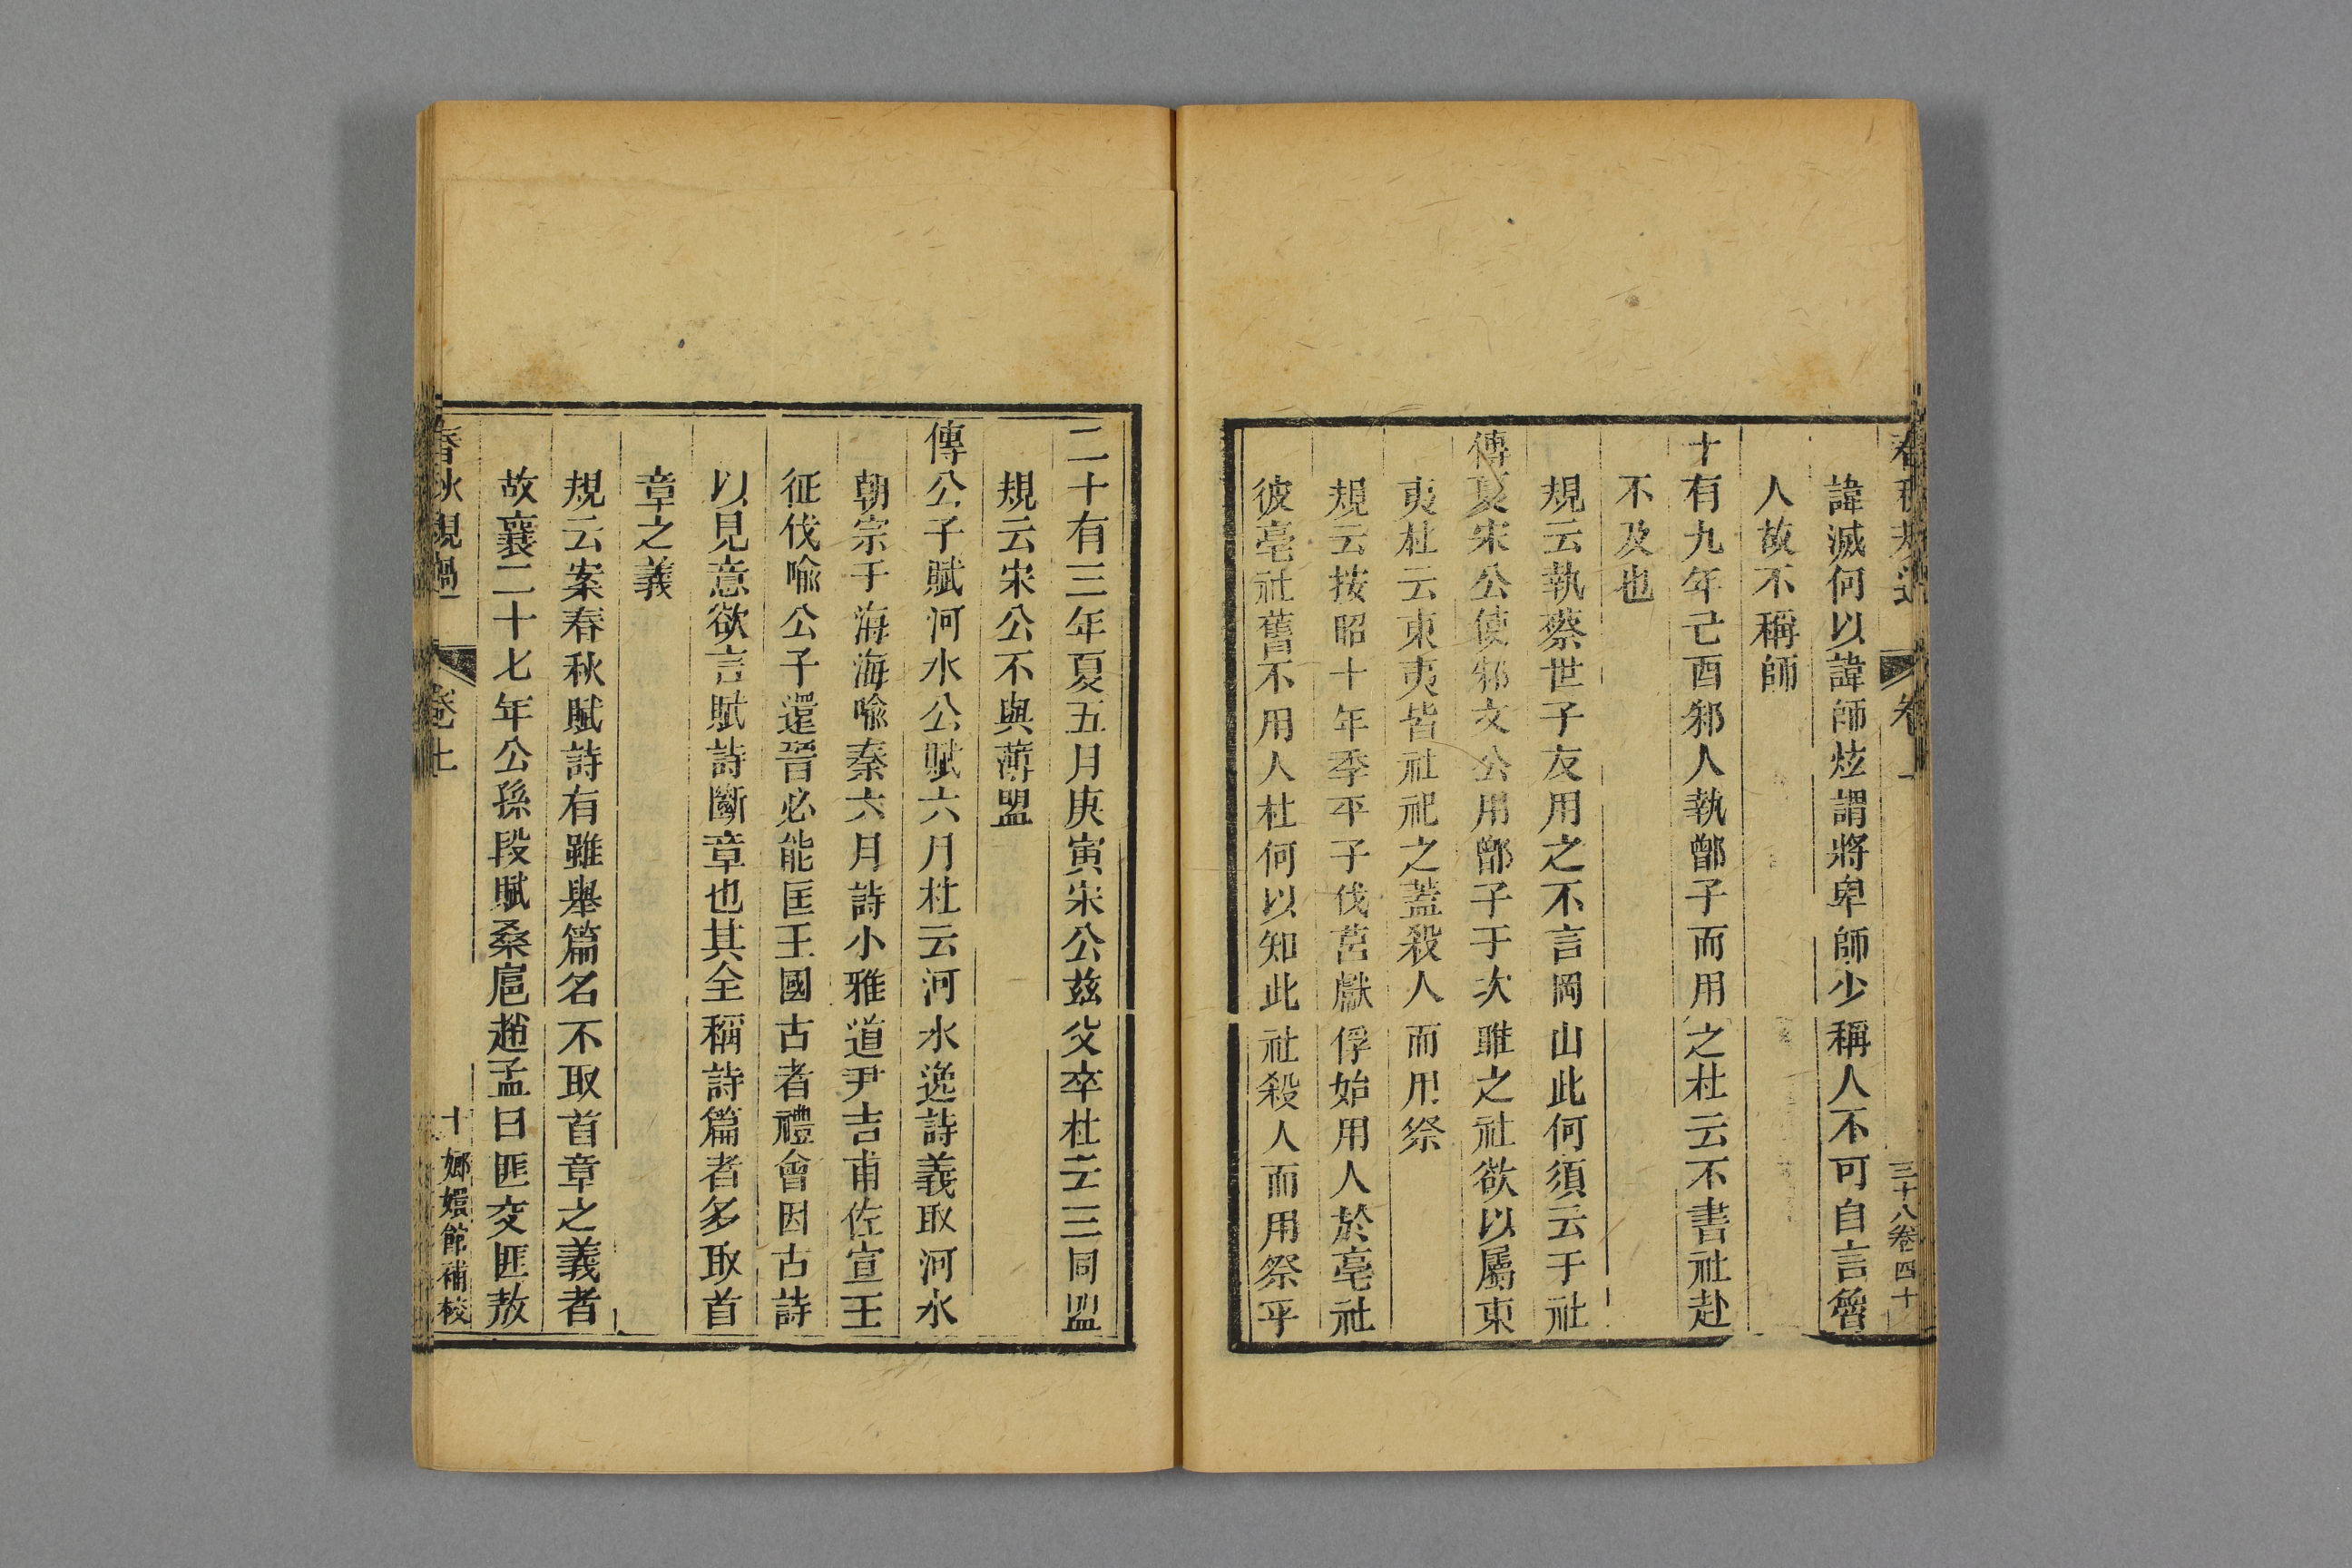 諱滅何以諱師炫謂將卑師少稱人不可自言魯
人故不稱師
十有九年己酉邾人執鄫子而用之杜云不書社赴
不及也
規云執蔡世子友用之不言岡山此何須云于社
傳夏宋公使邾文公用鄫子于次雎之社欲以屬東
夷杜云東夷皆社祀之蓋殺人而用祭
規云按昭十年季平子伐莒獻俘始用人於亳社
彼亳社舊不用人杜何以知此社殺人而用祭乎
三十八卷四十
二十有三年夏五月庚寅宋公玆父卒杜云三同盟
規云宋公不與薄盟
傳公子賦河水公賦六月杜云河水逸詩義取河水
朝宗于海海喻秦六月詩小雅道尹吉甫佐宣王
征伐喻公子還晉必能匡王國古者禮會因古詩
以見意欲言賦詩斷章也其全稱詩篇者多取首
章之義
規云案春秋賦詩有雖舉篇名不取首章之義者
故襄二十七年公孫段賦桑扈趙孟曰匪交匪敖
春秋規過 卷上 十 嫏嬛館補校